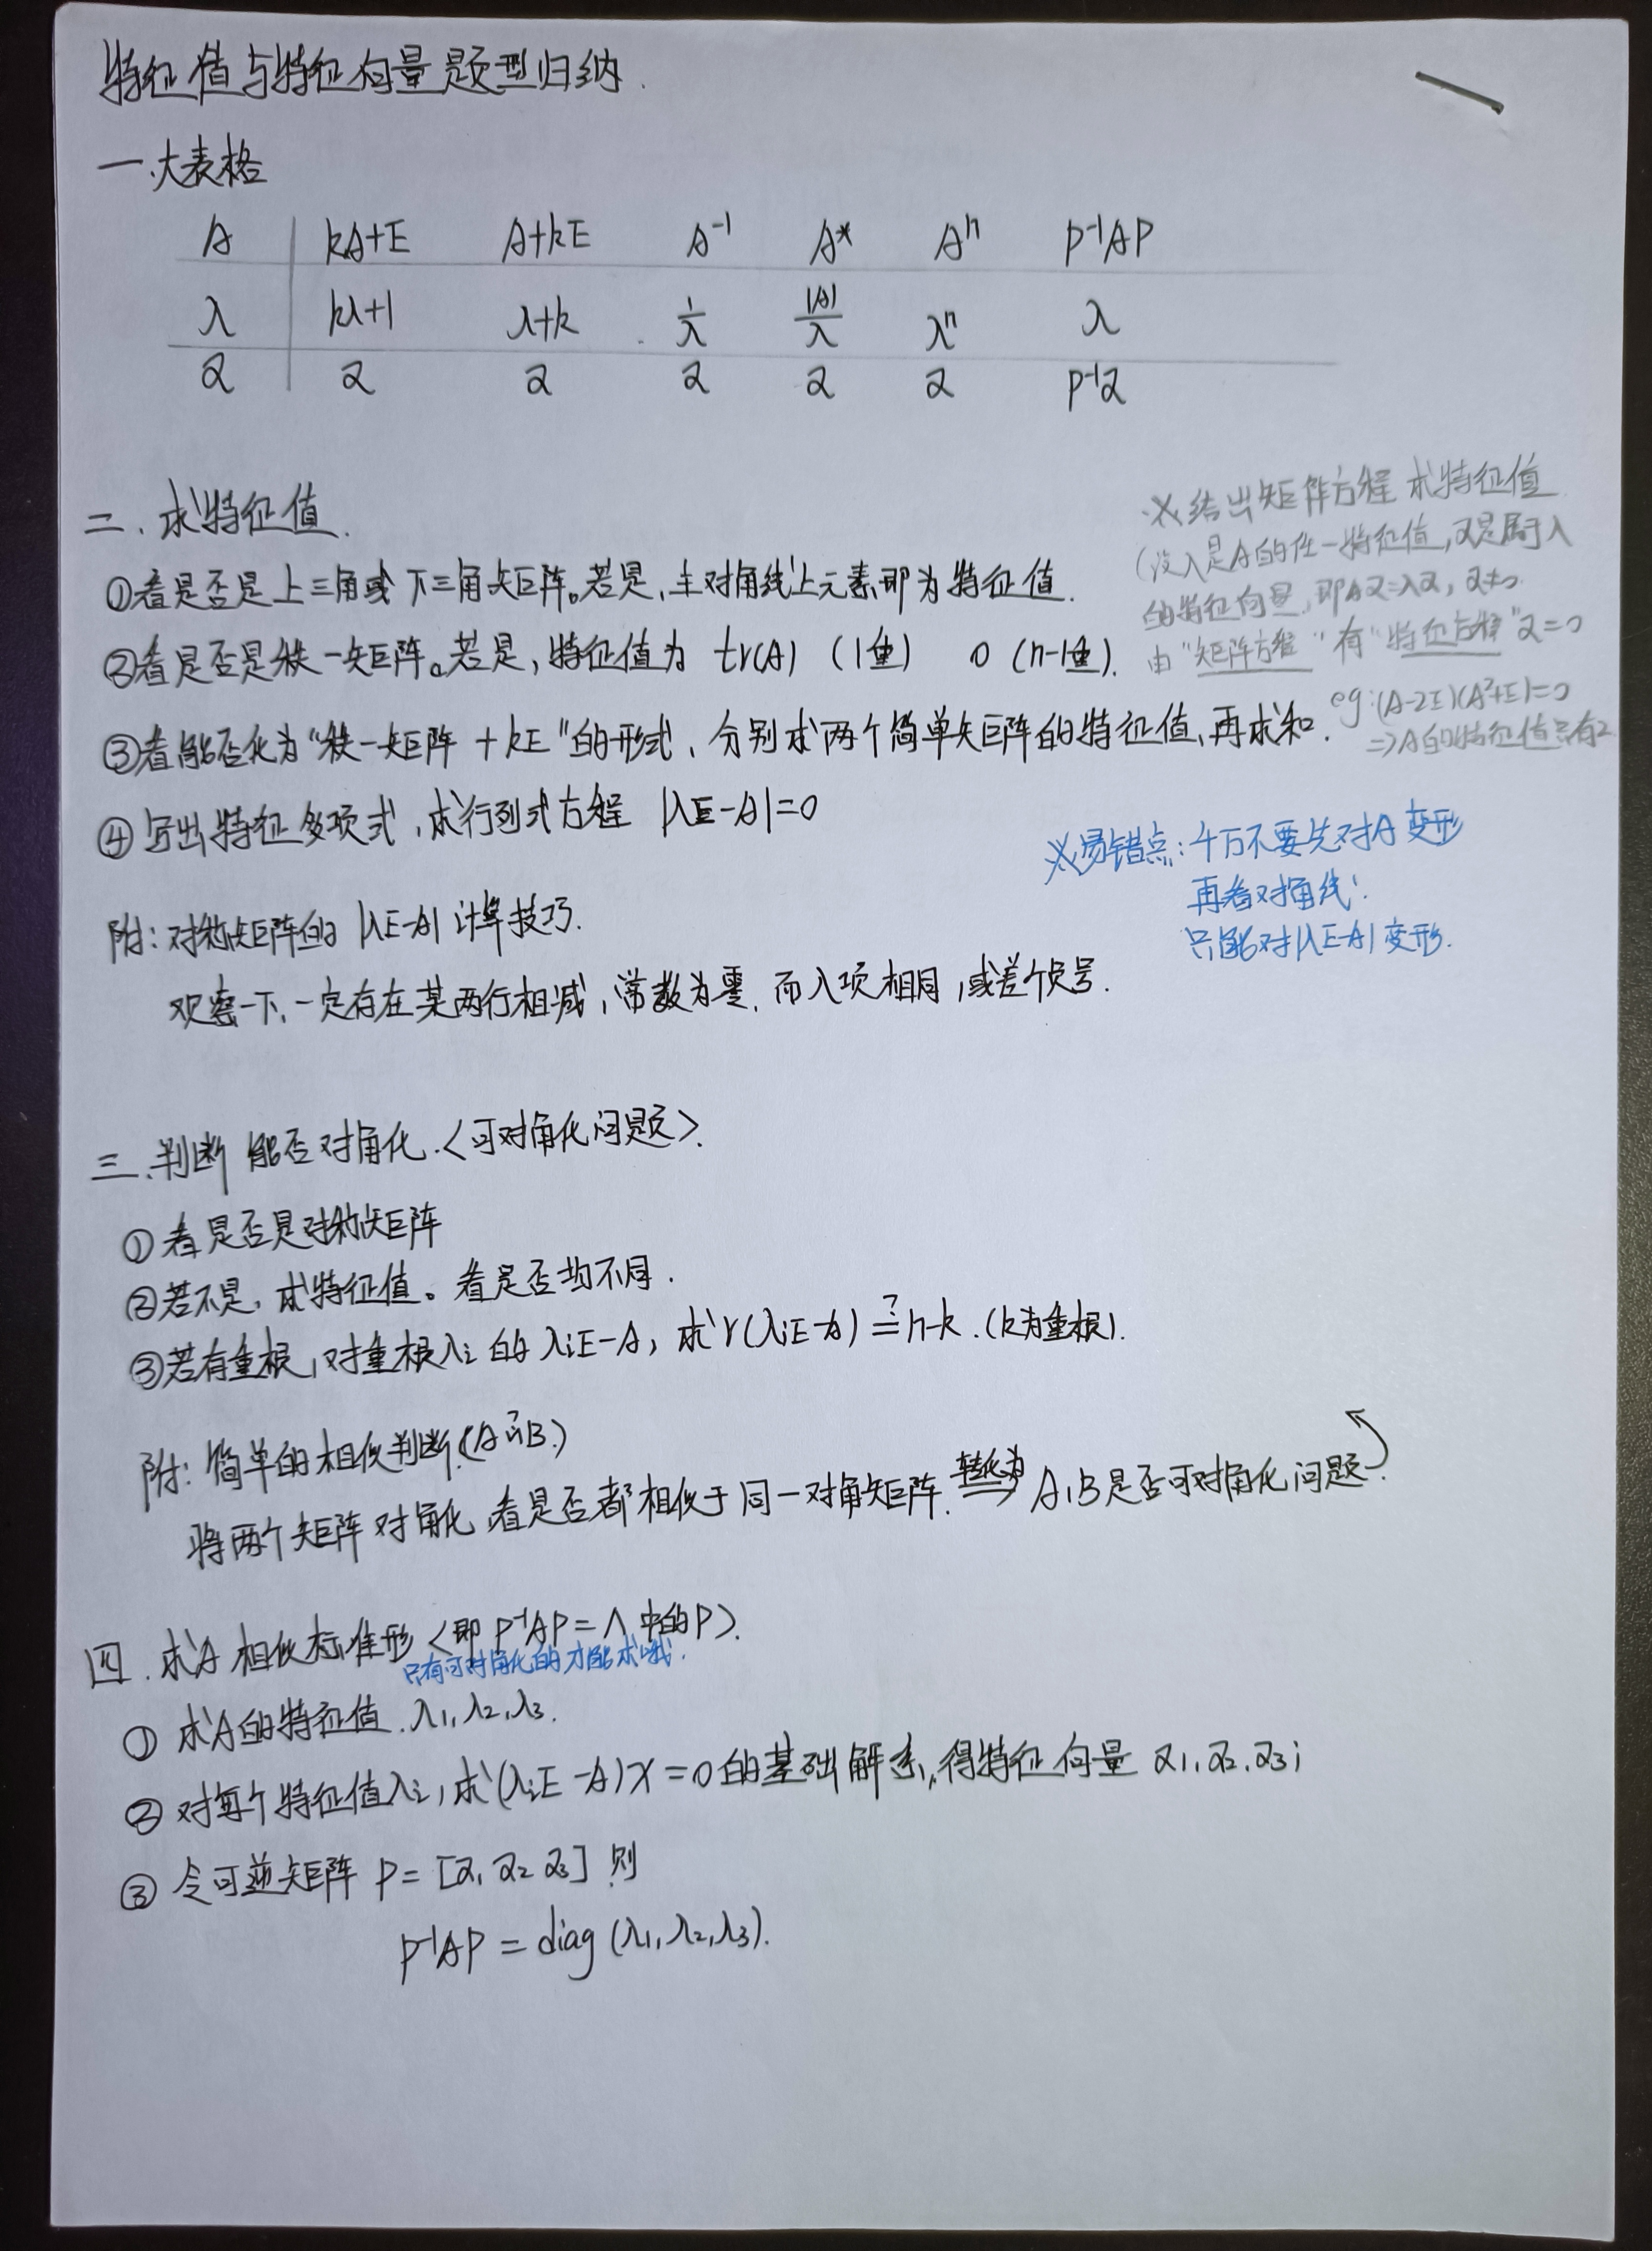 特征值与特征向量题型归纳.
一.大表格
A kA+E A+kE A⁻¹ A* Aⁿ P⁻¹AP
λ kλ+1 λ+k 1/λ |A|/λ λⁿ λ
α α α α α α P⁻¹α
二.求特征值.
①看是否是上三角或下三角矩阵。若是,主对角线上元素即为特征值.
②看是否是秩一矩阵。若是,特征值为 tr(A) (1重) 0 (n-1重).
③看能否化为“秩一矩阵 + kE”的形式,分别求两个简单矩阵的特征值,再求和.
④写出特征多项式,求行列式方程 |λE-A|=0
※给出矩阵方程 求特征值
(设λ是A的任一特征值,α是属于λ
的特征向量,即Aα=λα, α≠0.
由“矩阵方程”有“特征方程”α=0
eg:(A-2E)(A²+E)=0
⇒A的特征值只有2
※易错点:千万不要先对A变形
再看对角线!
只能对|λE-A|变形.
附:对称矩阵的 |λE-A| 计算技巧.
观察一下,一定存在某两行相减,常数为零,而λ项相同,或差个负号.
三.判断能否对角化.<可对角化问题>.
①看是否是对称矩阵
②若不是,求特征值。看是否均不同.
③若有重根,对重根λi 的 λiE-A, 求 r(λiE-A) ≟ n-k.(k为重根).
附:简单的相似判断.(A ~? B.)
将两个矩阵对角化,看是否都相似于同一对角矩阵. 转化为⟹ A,B是否可对角化问题.
四.求A相似标准形<即 P⁻¹AP=Λ 中的P>.
只有可对角化的才能求哦.
①求A的特征值.λ1,λ2,λ3.
②对每个特征值λi,求(λiE-A)x=0的基础解系,得特征向量 α1,α2,α3;
③令可逆矩阵 P=[α1 α2 α3] 则
P⁻¹AP = diag (λ1,λ2,λ3).